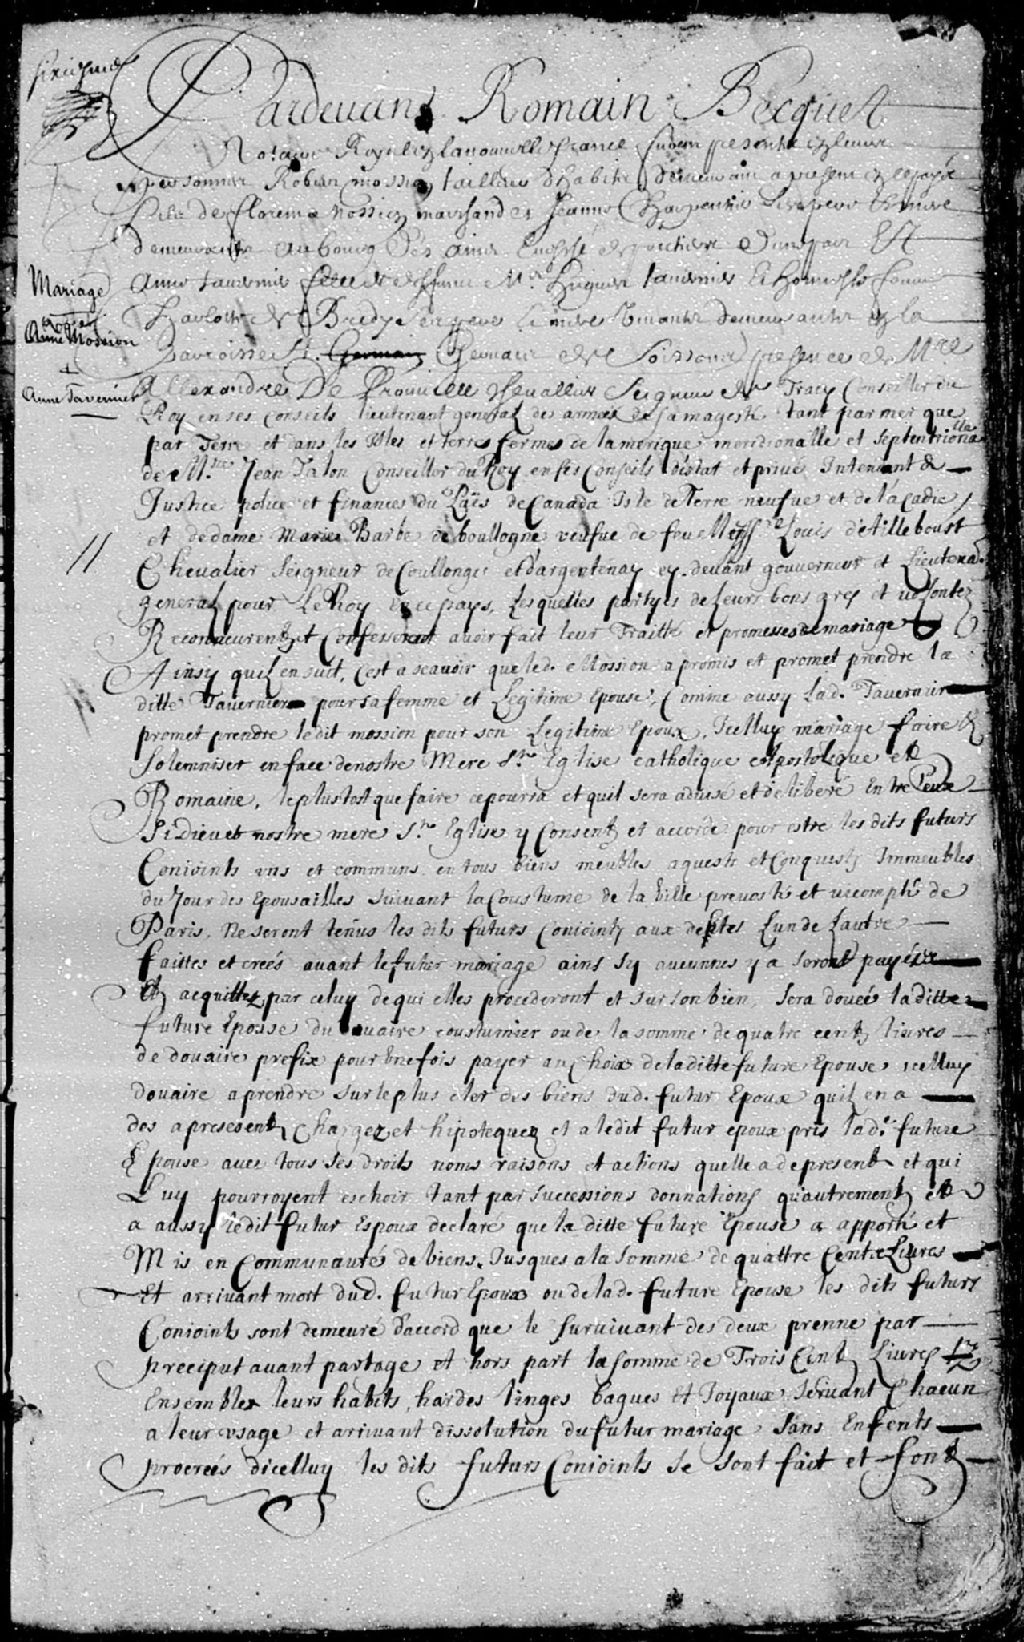 Pardevant Romain Becquet
Notaire Royal en la nouvelle france furent presents en leurs
personnes Robert mossion tailleur d'habits demeurant a present en ce pays
fils de florent mossion marchand et Jeanne Charpentier ses pere et mere
demeurants au bourg
Mariage
Anne tavernier fille de deffunct Mr. tavernier et honneste femme
Robert
Mossion
ses pere et mere demeurante en la
Parroisse St. Germain presence de Mre
+
Anne Tavernier
Allexandre De Prouville Chevallier Seigneur de Tracy Conseiller du
Roy en ses Conseils lieutenant general des armées de sa majesté tant par mer que
par Terre et dans les Isles et terre fermes de lamerique meridionalle et septentrionalle
de Mre. Jean Talon Conseiller du Roy en ses Conseils d'estat et privé Intendant de
Justice police et finances du Païs de Canada Isle de Terre neufue et de l'acadie
et de dame Marie Barbe de boullogne veufue de feu Messre Louis d'ailleboust
//
Chevalier Seigneur de Coullonge et d'argentenay cy-devant gouverneur et Lieutenant
general pour Le Roy en ce pays, Lesquelles partyes de Leurs bons grez et volontez
Reconneurent et Confesserent avoir fait leur Traitté et promesses de mariage
Ainsy quil en suit, C'est a scavoir que led. Mossion a promis et promet prendre la
ditte Tavernier pour sa femme et Legitime Epouse, Comme aussy lad. Tavernier
promet prendre ledit mossion pour son Legitime Epoux, Icelluy mariage faire &
Solemniser en face de nostre Mere Ste Eglise catholique Apostolique et
Romaine, le plus tost que faire ce pourra et quil sera advisé et deliberé Entre Eux
Si Dieu et nostre mere Ste Eglise y Consent et accorde pour estre les dits futurs
Conioints uns et communs en tous biens meubles aquests et Conquests Immeubles
du Jour des Epousailles suivant la Coustume de la Ville prevosté et vicompté de
Paris. Ne seront tenus les dits futurs Conioints aux debtes L'un de L'autre
faittes et creés avant le futur mariage ains sy aucunnes y a seront payés
Et acquittez par celuy de qui elles procederont et sur son bien, sera doueé la ditte
future Epouse du douaire coustumier ou de la somme de quatre cents liures
de douaire prefix pour une fois payer au Choix de la ditte future Epouse icelluy
douaire a prendre sur le plus cler des biens dud. futur Epoux quil en a
des a present Chargez et hipotequez et a ledit futur epoux pris lad. future
Epouse avec tous ses droits noms raisons et actions quelle a de present et qui
Luy pourroyent eschoir tant par successions donnations qu'autrement et
a aussy ledit futur Espoux declaré que la ditte future Epouse a apporté et
Mis en Communauté de biens Jusques a la somme de quattre Cents Livres
Et arrivant mort dud. futur Epoux ou de lad. future Epouse les dits futurs
Conioints sont demeuré d'accord que le survivant des deux prenne par
preciput avant partage et hors part la somme de Trois Cent Livres
Ensembles leurs habits, hardes linges bagues et Joyaux seruant Chacun
a leur usage et arrivant dissolution du futur mariage sans Enfents
procreés dicelluy les dits futurs Conioints se sont fait et font